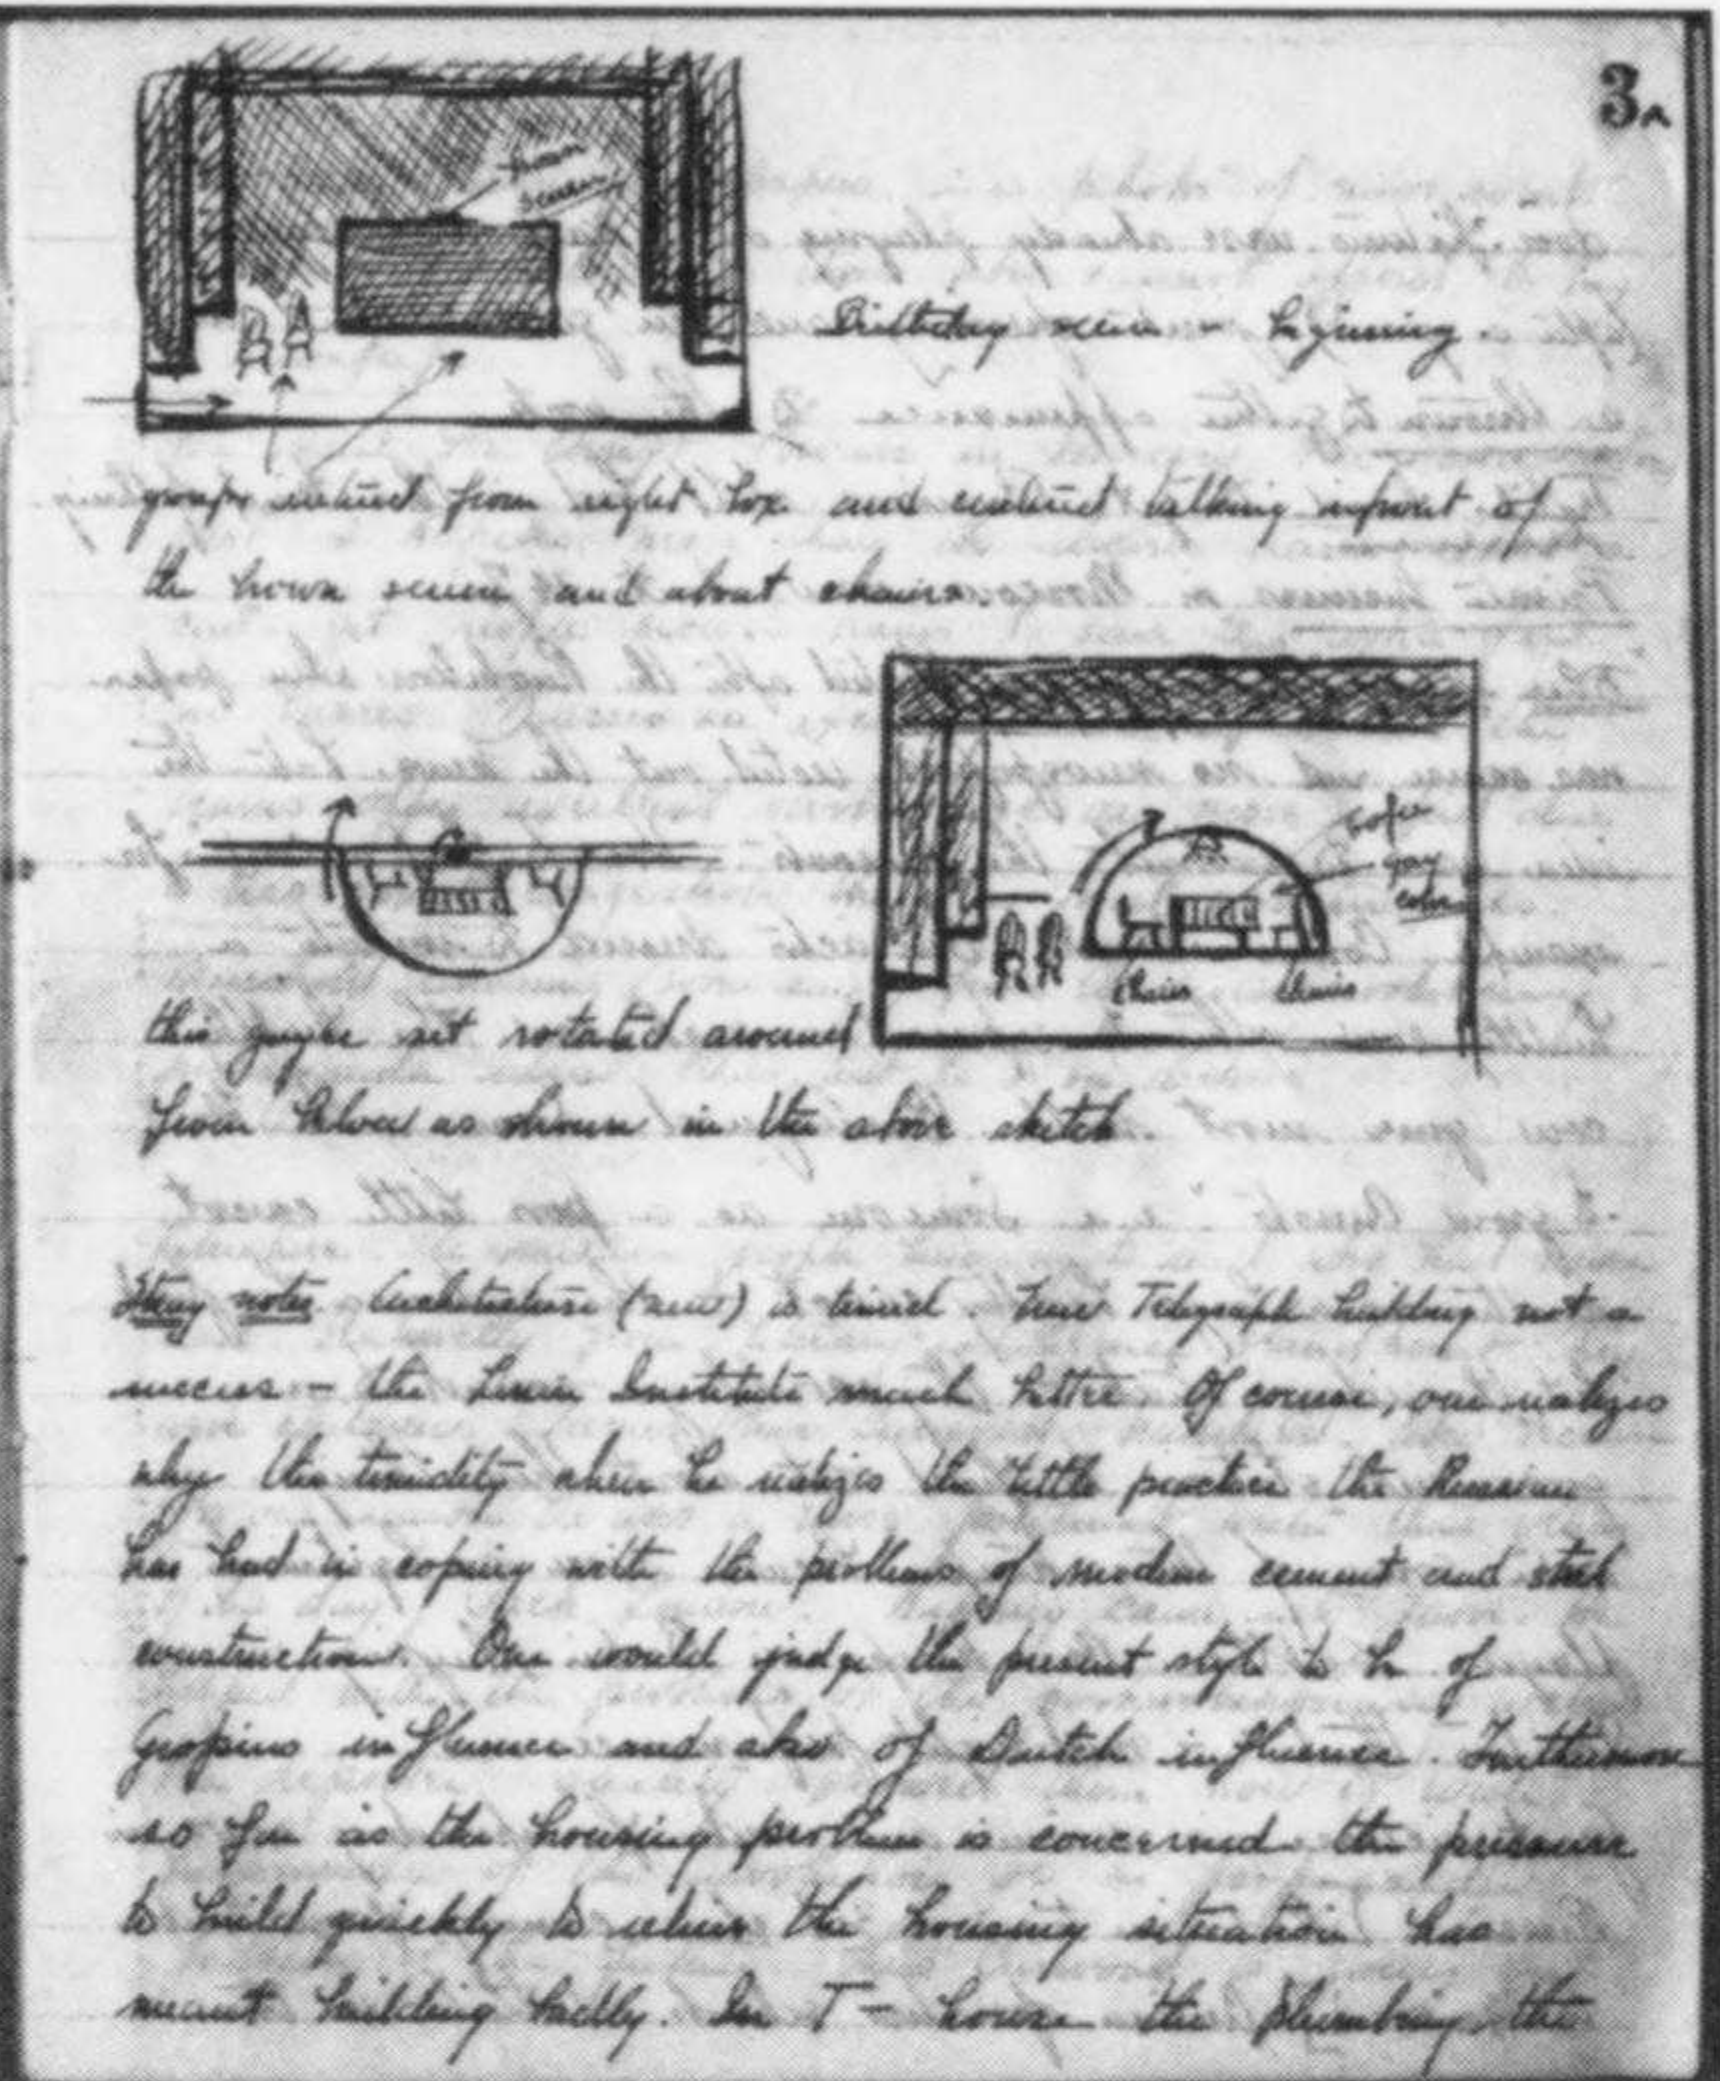 3A
brown
screen
Birthday scene - beginning.
groups entered from right box and entered talking infront of
the brown screen and about chairs.
sofa
gay
color
chairs
chairs
this set rotated around
from below as shown in the above sketch
Stray notes. Architecture (new) is timid. New Telegraph building not a
success - the Lenin Institute much better. Of course, one realizes
why the timidity when he realizes the little practice the Russian
has had in coping with the problems of modern cement and steel
construction. One would judge the present style to be of
Gropius influence and also of Dutch influence. Furthermore
so far as the housing problem is concerned the pressure
to build quickly to relieve the housing situation has
meant building badly. In T- house the plumbing, the